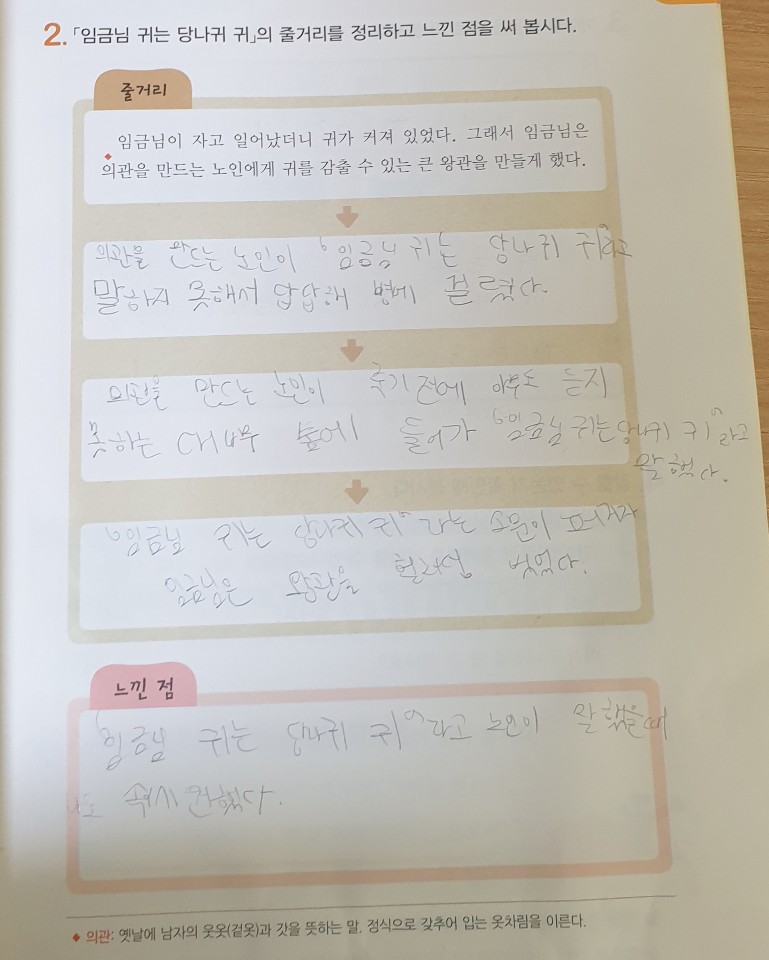 2. 「임금님 귀는 당나귀 귀」의 줄거리를 정리하고 느낀 점을 써 봅시다.
줄거리
임금님이 자고 일어났더니 귀가 커져 있었다. 그래서 임금님은
의관을 만드는 노인에게 귀를 감출 수 있는 큰 왕관을 만들게 했다.
의관을 만드는 노인이 "임금님 귀는 당나귀 귀"라고
말하지 못해서 답답해 병에 걸렸다.
의관을 만드는 노인이 죽기 전에 아무도 듣지
못하는 대나무 숲에 들어가 "임금님 귀는 당나귀 귀"라고
말했다.
"임금님 귀는 당나귀 귀"라는 소문이 퍼지자
임금님은 왕관을 벗었다.
느낀 점
"임금님 귀는 당나귀 귀"라고 노인이 말했을때
나도 속시원했다.
◆ 의관: 옛날에 남자의 웃옷(겉옷)과 갓을 뜻하는 말. 정식으로 갖추어 입는 옷차림을 이른다.